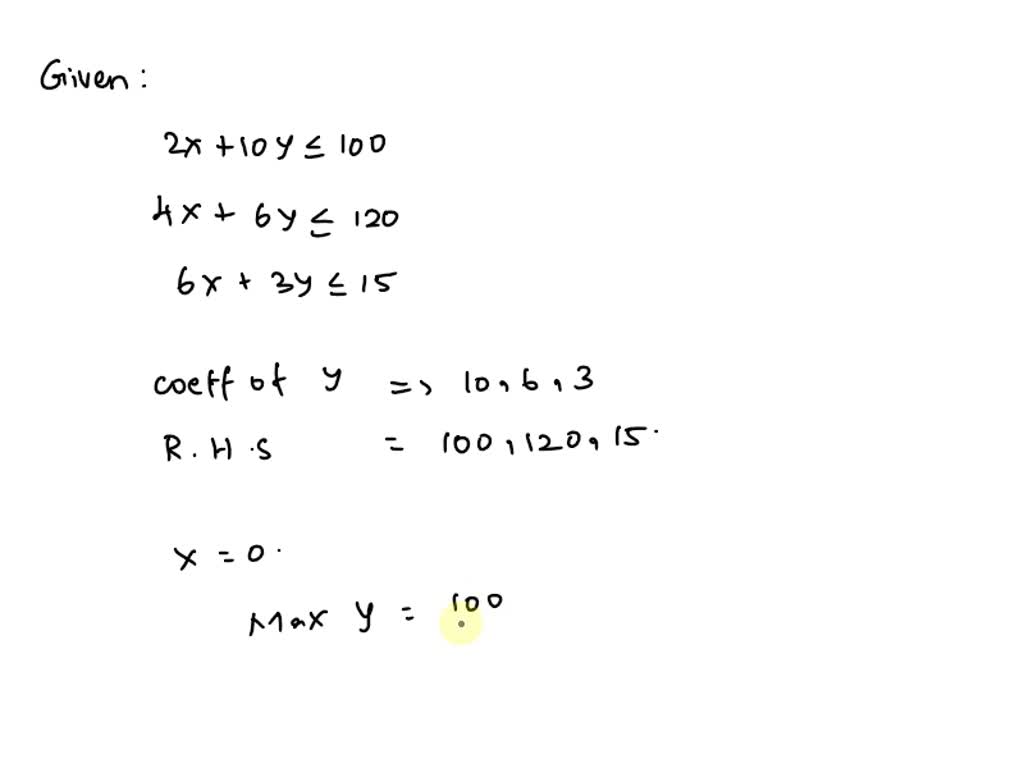 Given:
2x + 10y ≤ 100
4x + 6y ≤ 120
6x + 3y ≤ 15
coeff of y => 10, 6, 3
R.H.S = 100, 120, 15.
x = 0.
Max y = 100